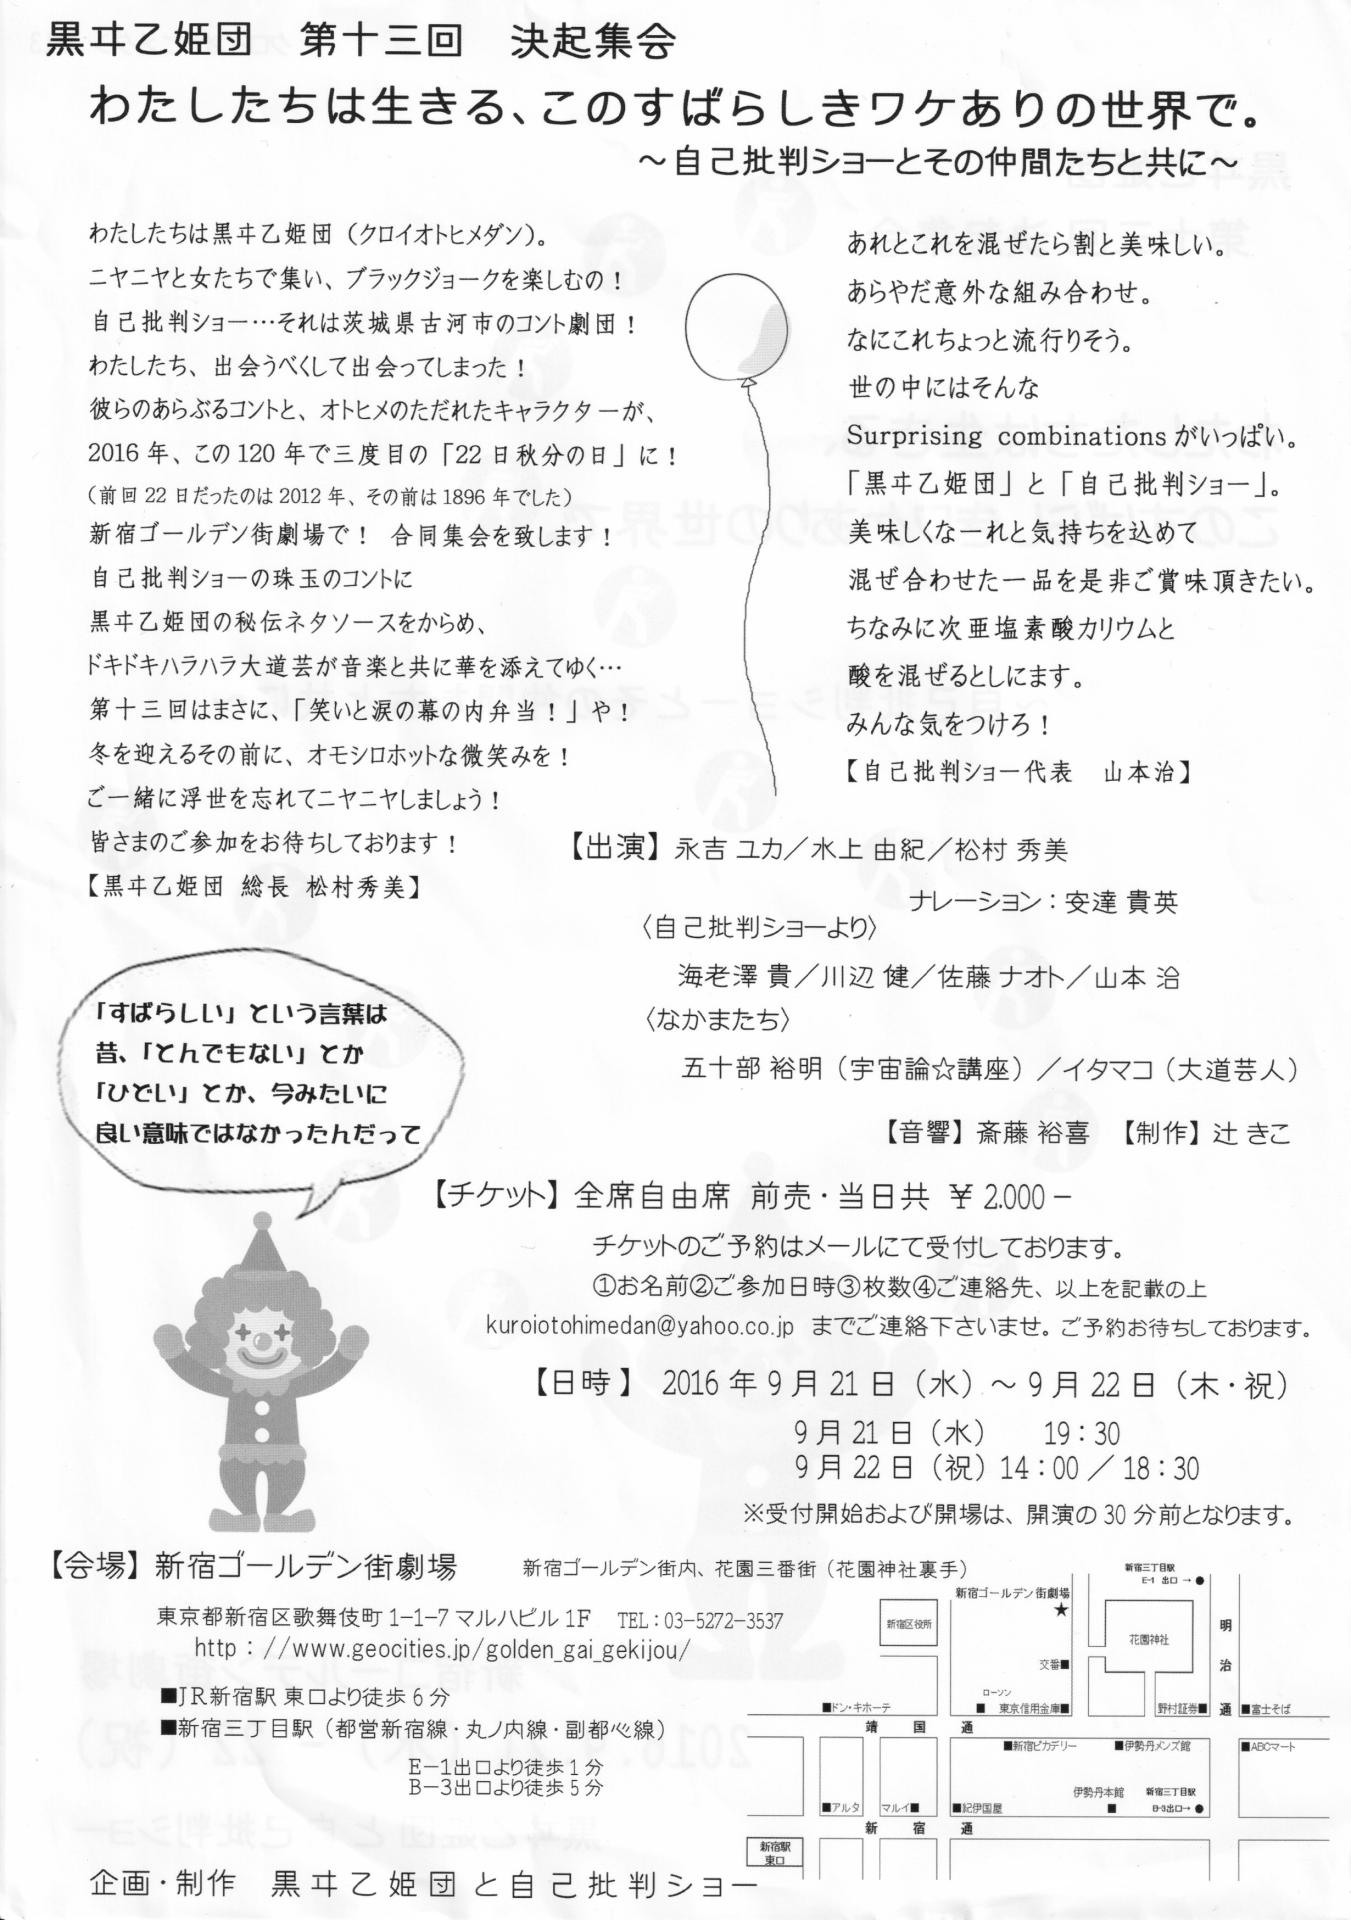 黒ヰ乙姫団　第十三回　決起集会
わたしたちは生きる、このすばらしきワケありの世界で。
～自己批判ショーとその仲間たちと共に～
わたしたちは黒ヰ乙姫団（クロイオトヒメダン）。
ニヤニヤと女たちで集い、ブラックジョークを楽しむの！
自己批判ショー…それは茨城県古河市のコント劇団！
わたしたち、出会うべくして出会ってしまった！
彼らのあらぶるコントと、オトヒメのただれたキャラクターが、
2016年、この120年で三度目の「22日秋分の日」に！
（前回22日だったのは2012年、その前は1896年でした）
新宿ゴールデン街劇場で！ 合同集会を致します！
自己批判ショーの珠玉のコントに
黒ヰ乙姫団の秘伝ネタソースをからめ、
ドキドキハラハラ大道芸が音楽と共に華を添えてゆく…
第十三回はまさに、「笑いと涙の幕の内弁当！」や！
冬を迎えるその前に、オモシロホットな微笑みを！
ご一緒に浮世を忘れてニヤニヤしましょう！
皆さまのご参加をお待ちしております！
【黒ヰ乙姫団 総長 松村秀美】
あれとこれを混ぜたら割と美味しい。
あらやだ意外な組み合わせ。
なにこれちょっと流行りそう。
世の中にはそんな
Surprising combinationsがいっぱい。
「黒ヰ乙姫団」と「自己批判ショー」。
美味しくなーれと気持ちを込めて
混ぜ合わせた一品を是非ご賞味頂きたい。
ちなみに次亜塩素酸カリウムと
酸を混ぜるとしにます。
みんな気をつけろ！
【自己批判ショー代表　山本治】
【出演】永吉 ユカ／水上 由紀／松村 秀美
ナレーション：安達 貴英
〈自己批判ショーより〉
海老澤 貴／川辺 健／佐藤 ナオト／山本 治
〈なかまたち〉
五十部 裕明（宇宙論☆講座）／イタマコ（大道芸人）
【音響】斎藤 裕喜　【制作】辻 きこ
「すばらしい」という言葉は
昔、「とんでもない」とか
「ひどい」とか、今みたいに
良い意味ではなかったんだって
【チケット】全席自由席 前売・当日共 ￥2.000－
チケットのご予約はメールにて受付しております。
①お名前②ご参加日時③枚数④ご連絡先、以上を記載の上
kuroiotohimedan@yahoo.co.jp までご連絡下さいませ。ご予約お待ちしております。
【日時】 2016年9月21日（水）～9月22日（木・祝）
9月21日（水）　19：30
9月22日（祝）14：00／18：30
※受付開始および開場は、開演の30分前となります。
【会場】新宿ゴールデン街劇場　新宿ゴールデン街内、花園三番街（花園神社裏手）
東京都新宿区歌舞伎町1-1-7マルハビル1F　TEL：03-5272-3537
http：//www.geocities.jp/golden_gai_gekijou/
■JR新宿駅 東口より徒歩6分
■新宿三丁目駅（都営新宿線・丸ノ内線・副都心線）
E-1出口より徒歩1分
B-3出口より徒歩5分
新宿三丁目駅
E-1 出口→●
新宿ゴールデン街劇場
★
新宿区役所
花園神社
明治通
交番■
ローソン
■ 東京信用金庫■
野村証券■
■富士そば
■ドン・キホーテ
靖国通
■新宿ピカデリー
■伊勢丹メンズ館
■ABCマート
伊勢丹本館
■
新宿三丁目駅
B-3出口→●
■アルタ
マルイ■
■紀伊国屋
新宿通
新宿駅
東口
企画・制作　黒ヰ乙姫団と自己批判ショー